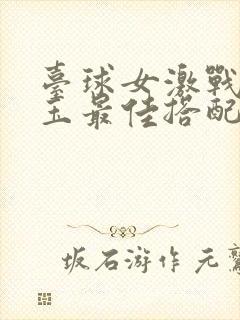 臺球女激戰
玉最佳搭配
坂石游作元